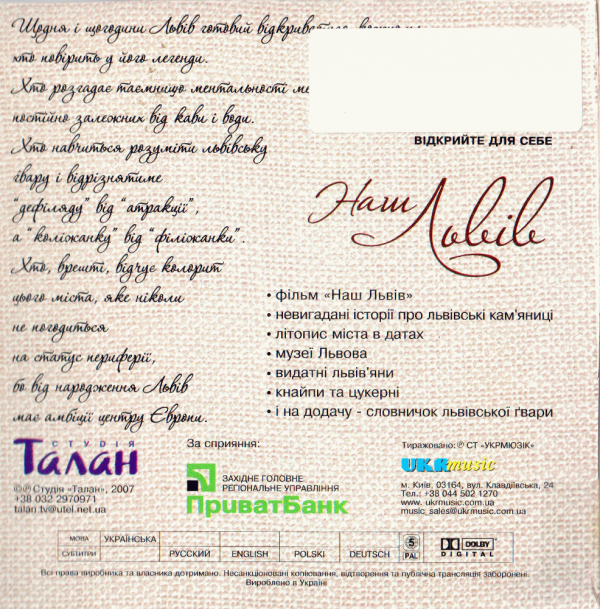 Щодня і щогодини Львів готовий відкриватися
хто повірить у його легенди.
Хто розгадає таємницю ментальності
постійно залежних від кави і води.
Хто навчиться розуміти львівську
ґвару і відрізнятиме
"дефіляду" від "атракції",
а "коліжанку" від "філіжанки".
Хто, врешті, відчує колорит
цього міста, яке ніколи
не погодиться
на статус периферії,
бо від народження Львів
має амбіції центру Європи.
ВІДКРИЙТЕ ДЛЯ СЕБЕ
Наш Львів
• фільм «Наш Львів»
• невигадані історії про львівські кам'яниці
• літопис міста в датах
• музеї Львова
• видатні львів'яни
• кнайпи та цукерні
• і на додачу - словничок львівської ґвари
СТУДІЯ
Талан
©℗ Студія «Талан», 2007
+38 032 2970971
talan.tv@utel.net.ua
За сприяння:
ЗАХІДНЕ ГОЛОВНЕ
РЕГІОНАЛЬНЕ УПРАВЛІННЯ
ПриватБанк
Тиражовано: ℗ СТ «УКРМЮЗІК»
UKRmusic
м. Київ, 03164, вул. Клавдіївська, 24
Тел.: +38 044 502 1270
www.ukrmusic.com.ua
music_sales@ukrmusic.com.ua
МОВА УКРАЇНСЬКА
СУБТИТРИ РУССКИЙ ENGLISH POLSKI DEUTSCH
5
PAL
DOLBY
DIGITAL
Всі права виробника та власника дотримано. Несанкціоновані копіювання, відтворення та публічна трансляція заборонені.
Вироблено в Україні